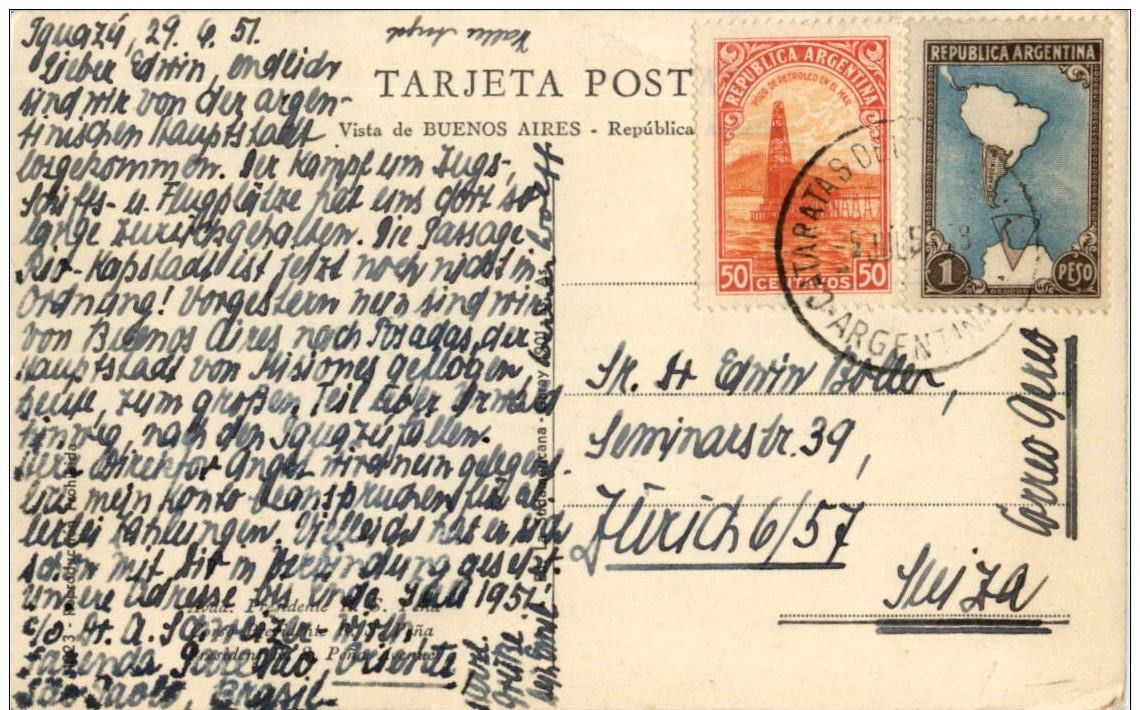 Iguazú, 29. 6. 51.
Lieber Edwin, endlich
sind wir von der argen-
tinischen Hauptstadt
losgekommen. Der Kampf um Zugs-,
Schiffs- u. Flugplätze hat uns dort so
lange zurückgehalten. Die Passage
Rio-Kapstadt ist jetzt noch nicht in
Ordnung! Vorgestern nun sind wir
von Buenos Aires nach Posadas, der
Hauptstadt von Misiones geflogen
heute, zum großen Teil über Urwald
hinweg, nach den Iguazúfällen.
Direktor Angst wird nun gelegent-
lich mein Konto beanspruchen für al-
lerlei Zahlungen. Vielleicht hat er sich
schon mit Dir in Verbindung gesetzt.
Unsere Adresse bis Ende Juli 1951
c/o Dr. A.
Fazenda
São Paolo, Brasil
Herzl.
Grüße
TARJETA POST
Vista de BUENOS AIRES - República
Avda. Presidente R. S. Peña
Presidente R. S. Peña Avenue
Reproducción Prohibida
REPUBLICA ARGENTINA
POZO DE PETROLEO EN EL MAR
50 CENTAVOS 50
REPUBLICA ARGENTINA
1 PESO
CATARATAS DEL
ARGENTINA
Sr. Dr Edwin Bolleter,
Seminarstr. 39,
Zürich 6/57
Suiza
Correo Aereo